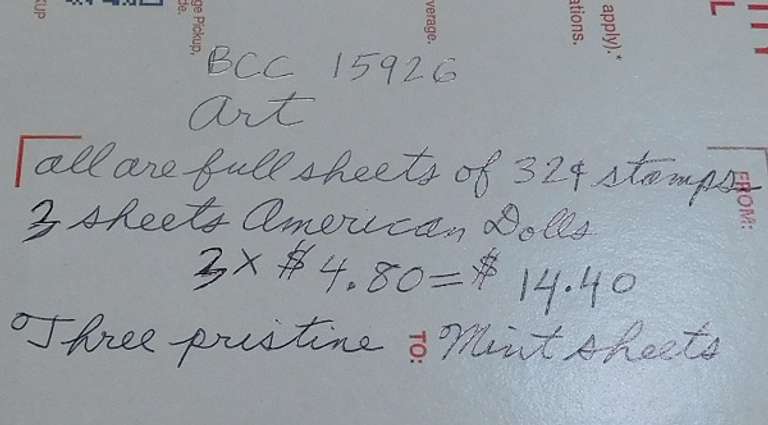 BCC 15926
Art
all are full sheets of 32¢ stamps
3 sheets American Dolls
3 x $4.80 = $14.40
Three pristine Mint sheets
TO:
FROM:
apply).*
ations.
verage.
ge Pickup,
de.
KUP